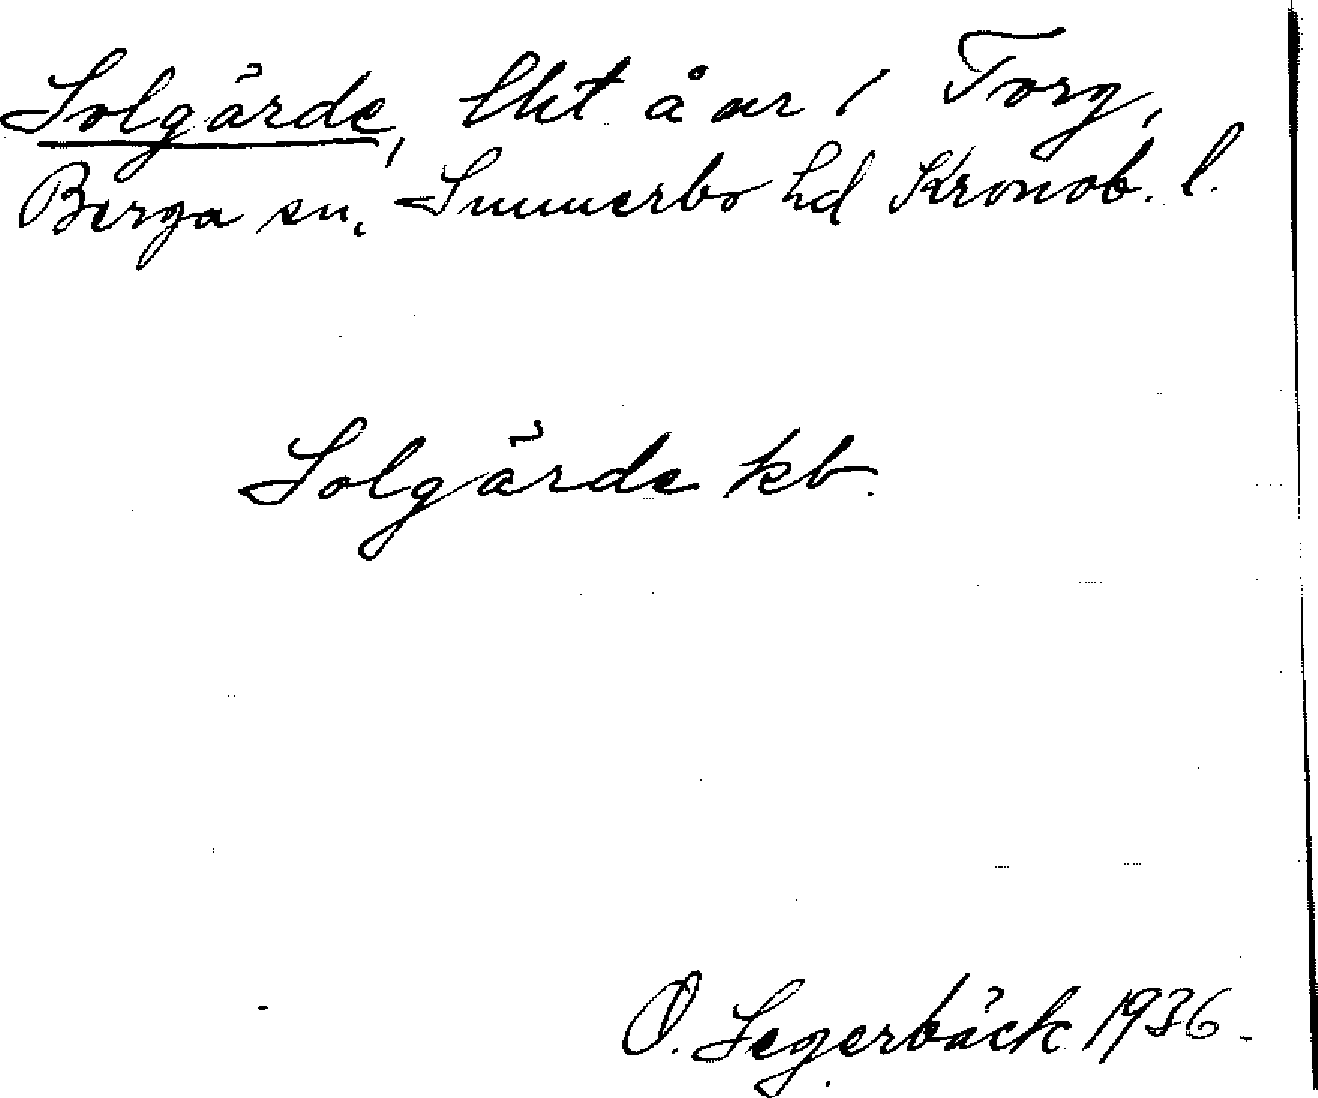 Solgärde, lht å ar i Torg,
Berga sn. Sunnerbo hd Kronob. l.
Solgärde kb.
O. Segerbäck 1936.